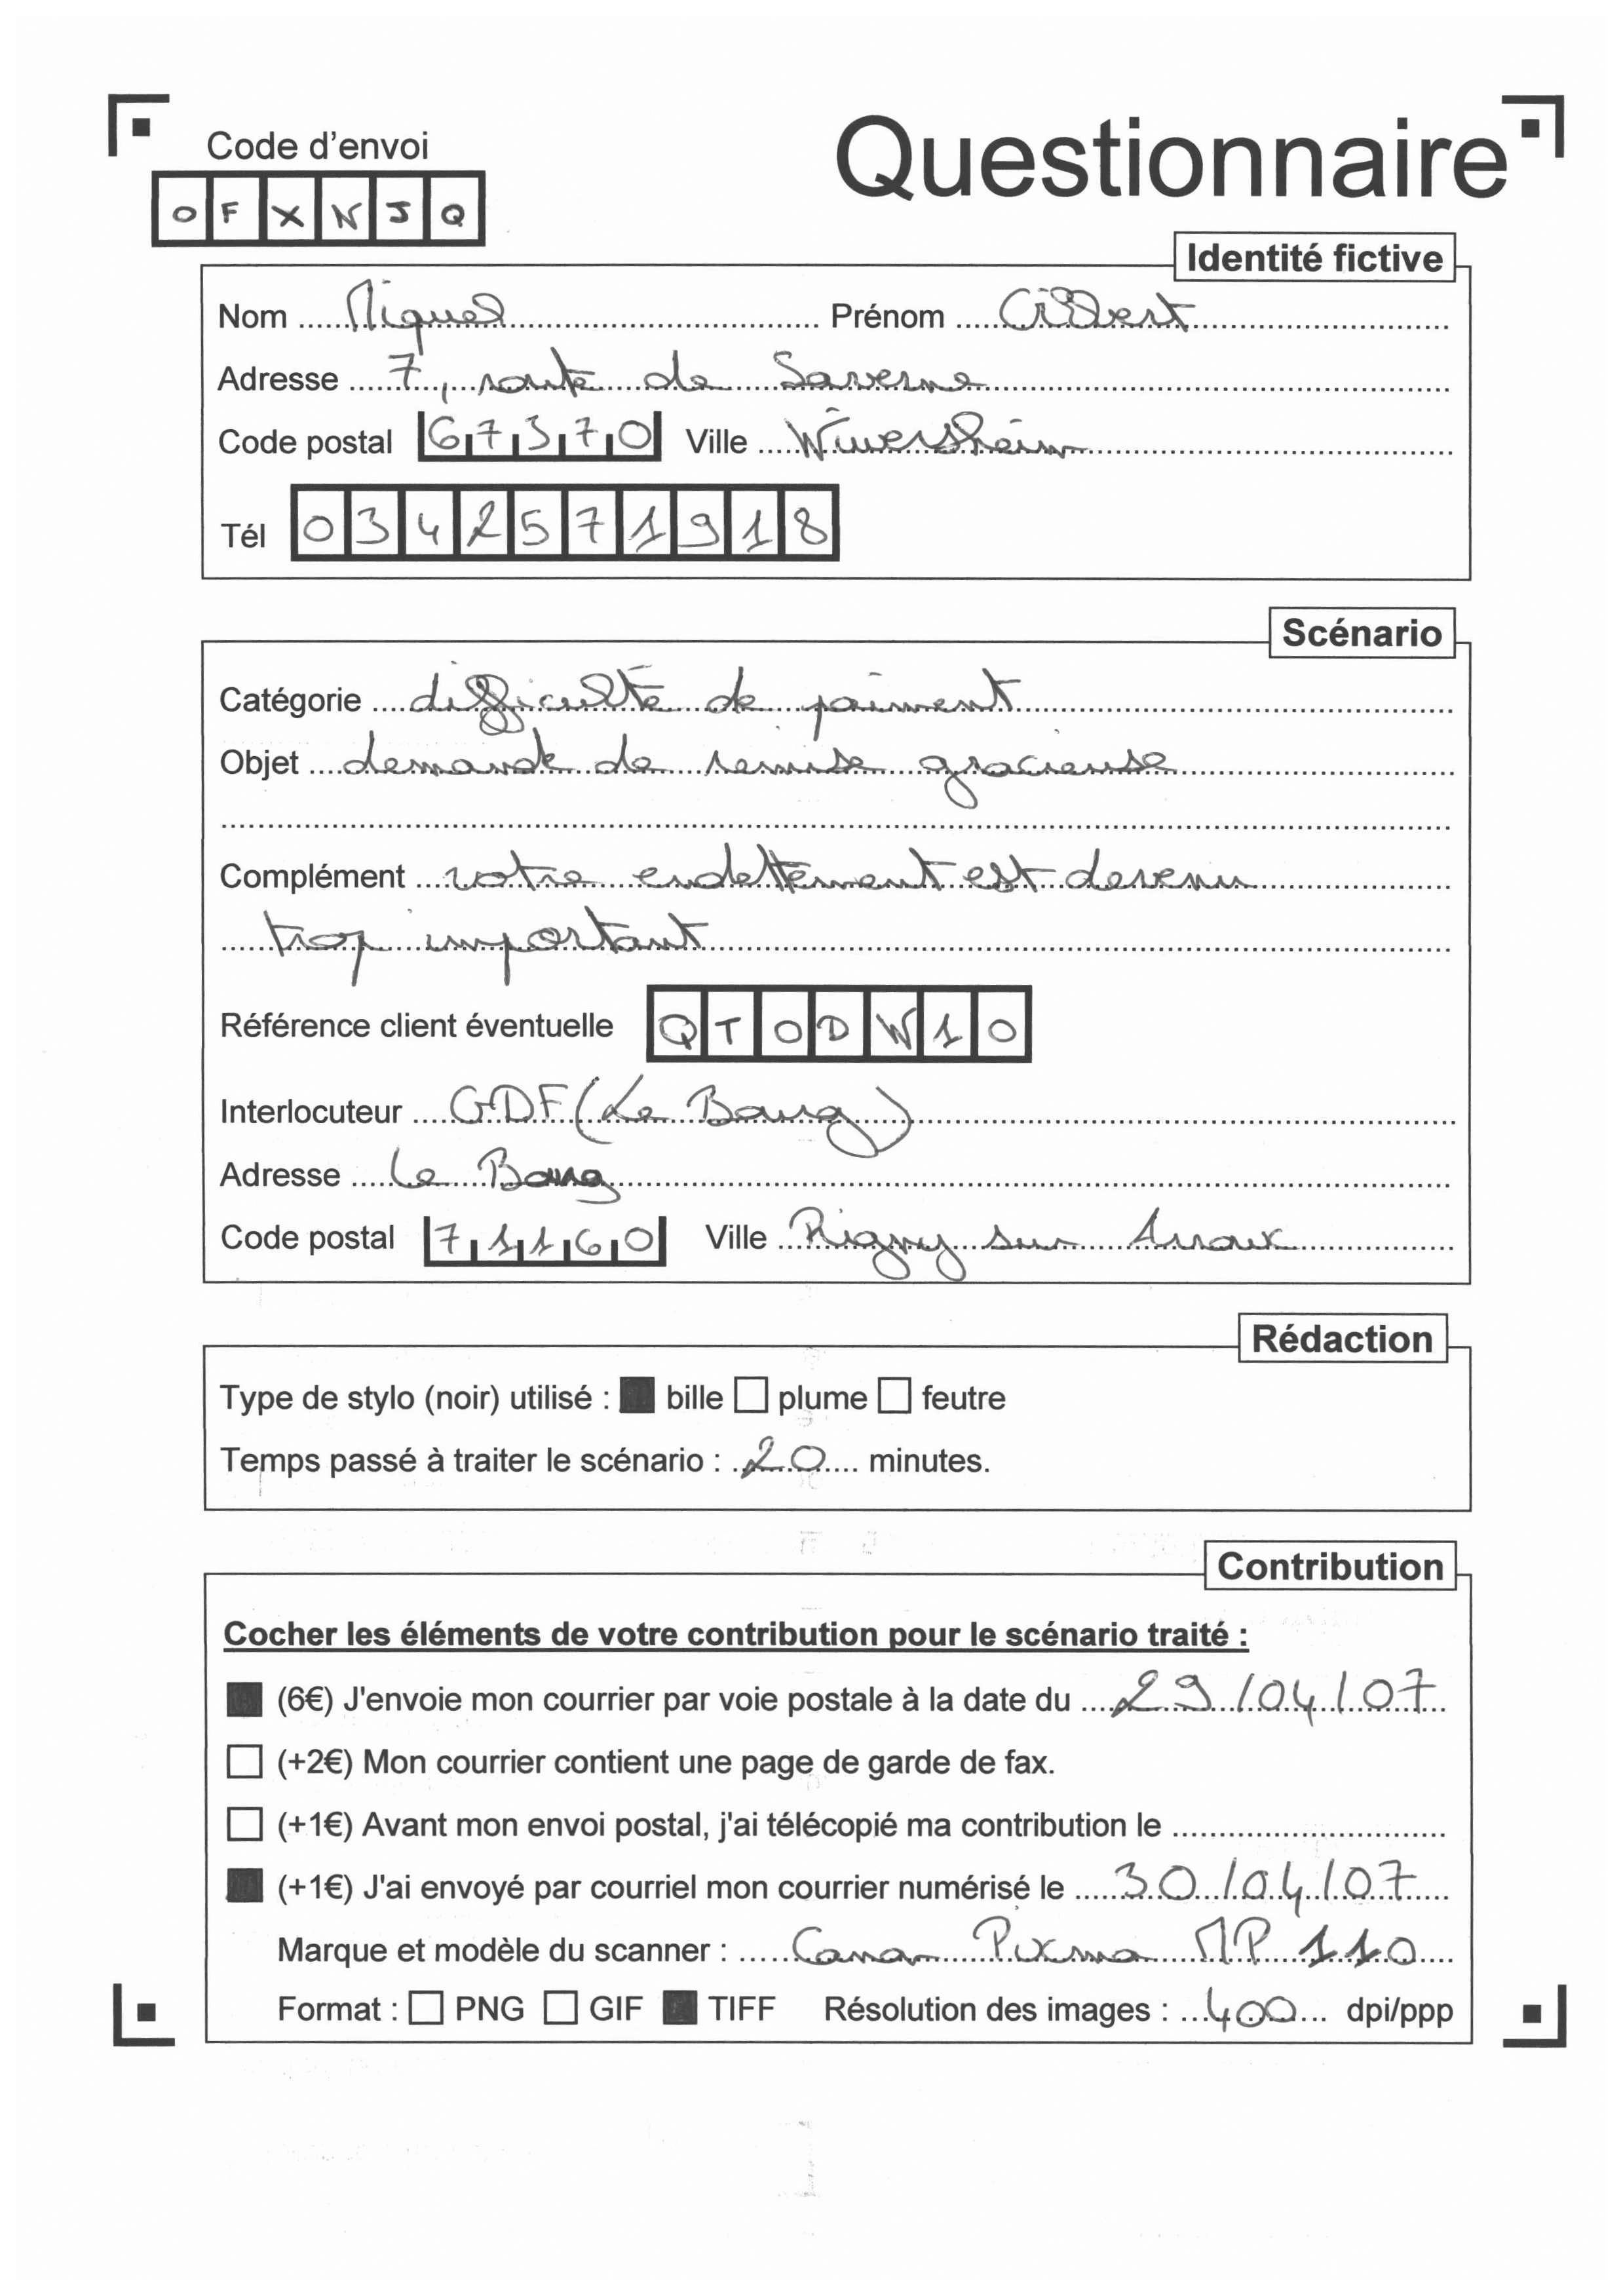 Code d'envoi
Questionnaire
O F X N J Q
Identité fictive
Nom Miquel Prénom Gilbert
Adresse 7, route de Saverne
Code postal 67370 Ville Wiwersheim
Tél 0342571918
Scénario
Catégorie difficulté de paiment
Objet demande de remise gracieuse
Complément votre endettement est devenu
trop important
Référence client éventuelle QTODW10
Interlocuteur GDF (Le Bourg)
Adresse Le Bourg
Code postal 71160 Ville Rigny sur Arroux
Rédaction
Type de stylo (noir) utilisé : bille plume feutre
Temps passé à traiter le scénario : 20 minutes.
Contribution
Cocher les éléments de votre contribution pour le scénario traité :
(6€) J'envoie mon courrier par voie postale à la date du 29/04/07
(+2€) Mon courrier contient une page de garde de fax.
(+1€) Avant mon envoi postal, j'ai télécopié ma contribution le
(+1€) J'ai envoyé par courriel mon courrier numérisé le 30/04/07
Marque et modèle du scanner : Canon Pixma MP 110
Format : PNG GIF TIFF Résolution des images : 400 dpi/ppp